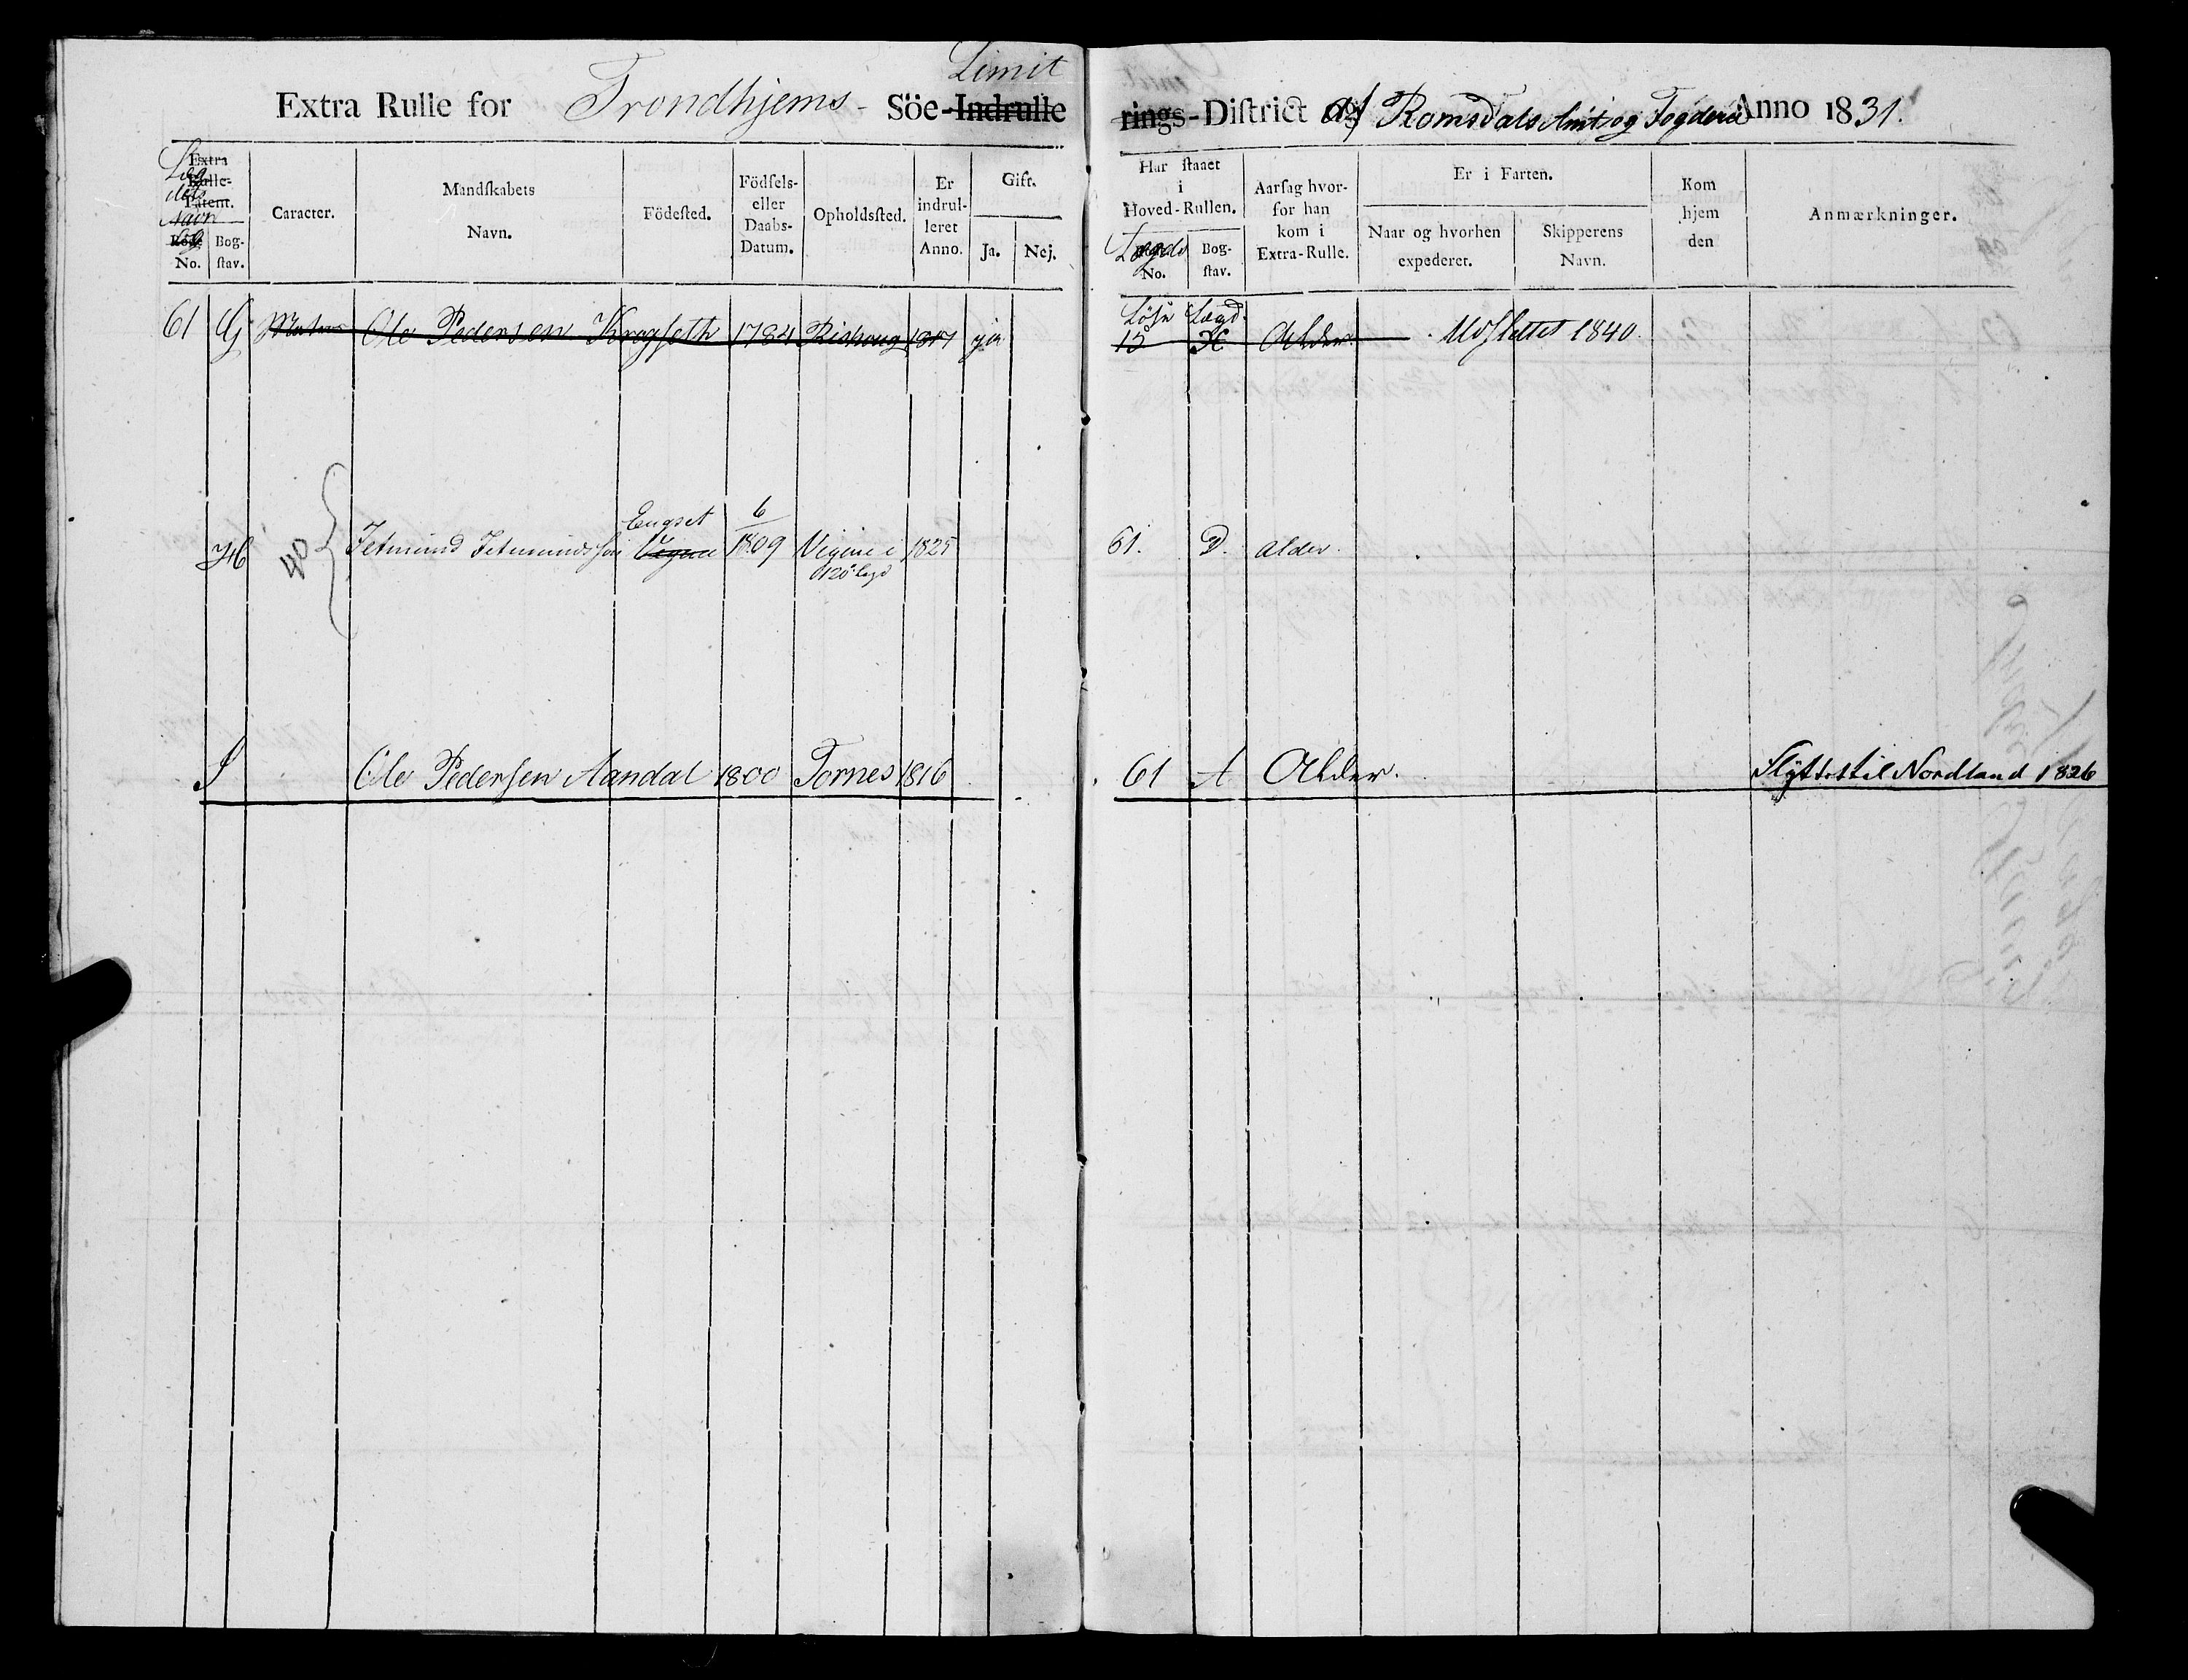 Limit
Extra Rulle for Trondhjems - Söe-Indrulle
rings-District af Romsdals Amt og Fogderie Anno 1831.
Extra
Rulle-
Patent.
Navn
No.
Bog-
stav.
Caracter.
Mandskabets
Navn.
Födested.
Födsels-
eller
Daabs-
Datum.
Opholdssted.
Er
indrul-
leret
Anno.
Gift.
Ja.
Nej.
Har staaet
i
Hoved-Rullen.
Lægds
No.
Bog-
stav.
Aarsag hvor-
for han
kom i
Extra-Rulle.
Er i Farten.
Naar og hvorhen
expederet.
Skipperens
Navn.
Kom
hjem
den
Anmærkninger.
Løse Lægd.
61 G Ole Pedersen Kragseth 1784 1817 ja 15 H Alder. Udslettet 1840.
Engset 6
H 40 Jetmund Jetmundssøn Vigne 1809 Vigene i 1825 61. D. alder.
120 lægd
I Ole Pedersen Aandal 1800 Tornes 1816 61 A Alder. Flÿttet til Nordland 1826